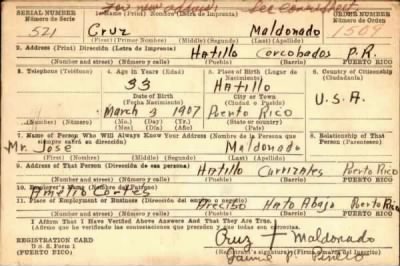 For new address See
SERIAL NUMBER 1. Name (Print) Nombre (Letra de Imprenta) ORDER NUMBER
Número de Serie Número de Orden
521 Cruz Maldonado 1509
(First) (Primer Nombre) (Middle) (Segundo) (Last) (Apellido)
2. Address (Print) Dirección (Letra de Imprenta)
Hatillo Corcobados P.R.
(Number and street) (Número y calle) (Pueblo) (Barrio) PUERTO RICO
3. Telephone (Teléfono) 4. Age in Years (Edad) 5. Place of Birth (Lugar de Nacimiento) 6. Country of Citizenship (Ciudadanía)
33 Hatillo
Date of Birth City or Town
(Fecha Nacimiento) (Ciudad o Pueblo) U.S.A.
March 3 1907 Puerto Rico
(Mo.) (Day) (Yr.) State or country
(Mes) (Día) (Año) País
7. Name of Person Who Will Always Know Your Address (Nombre de la Persona que siempre sabrá su dirección) 8. Relationship of That Person (Parentesco)
Mr. José Maldonado
(First) (Nombre) (Middle) (Segundo) (Last) (Apellido)
9. Address of That Person (Dirección de esa persona)
Hatillo Carrizales Puerto Rico
(Number and street) (Número y calle) (Pueblo) (Barrio) PUERTO RICO
10. Employer's Name (Nombre del Patrono)
Cortes
11. Place of Employment or Business (Dirección del empleo o negocio)
Arecibo Hato Abajo Puerto Rico
(Number and street) (Número y calle) (Pueblo) (Barrio) PUERTO RICO
I Affirm That I Have Verified Above Answers And That They Are True.
(Afirmo que he verificado las contestaciones que preceden y que todas son ciertas).
REGISTRATION CARD Cruz Maldonado
D. S. S. Form 1